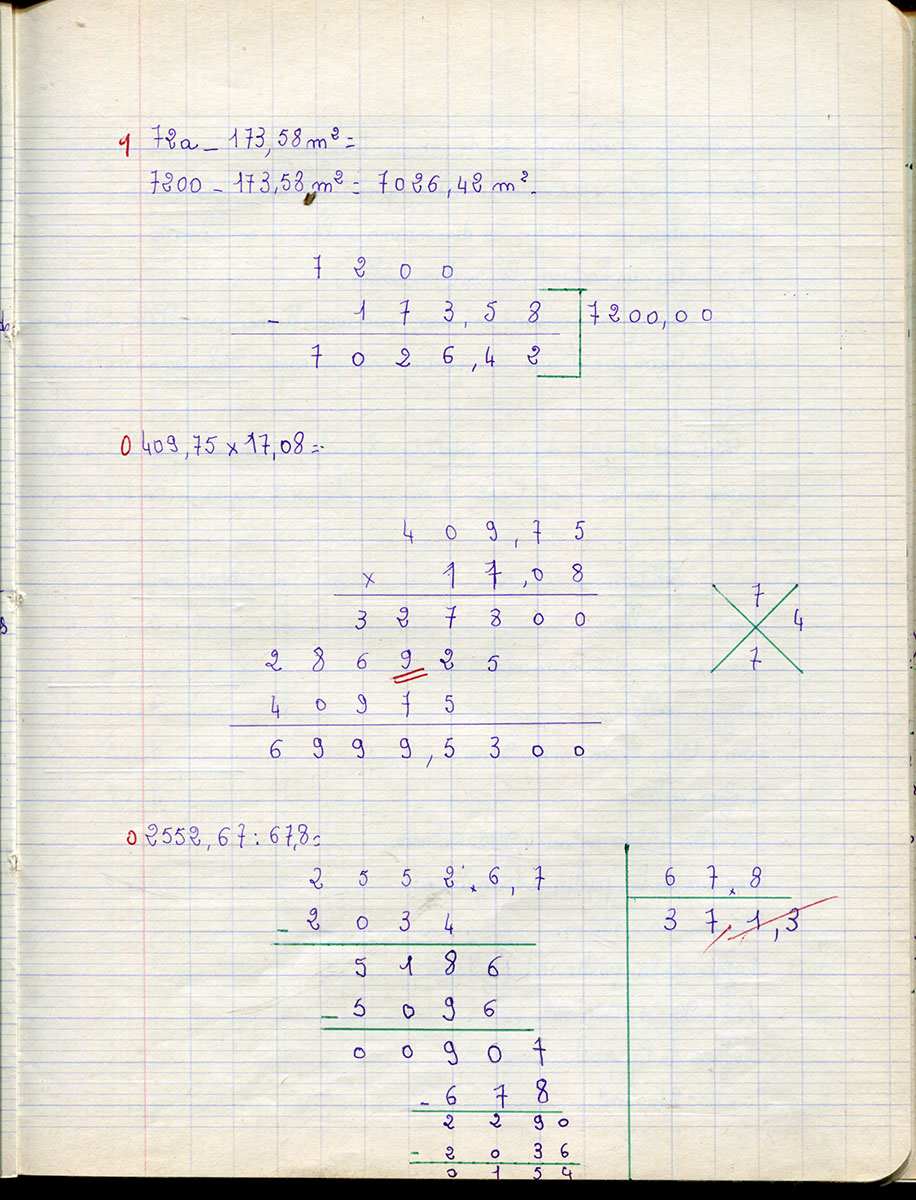 1 72a - 173,58 m² =
7200 - 173,58 m² = 7026,42 m².
7 2 0 0
- 1 7 3,5 8 7200,00
7 0 2 6,4 2
0 409,75 x 17,08 =
4 0 9,7 5
x 1 7,0 8
3 2 7 8 0 0
2 8 6 9 2 5
4 0 9 7 5
6 9 9 9,5 3 0 0
7
4
7
0 2552,67 : 67,8 =
2 5 5 2.6,7 6 7.8
- 2 0 3 4 3 7,1,3
5 1 8 6
- 5 0 9 6
0 0 9 0 7
- 6 7 8
2 2 9 0
- 2 0 3 6
0 1 5 4